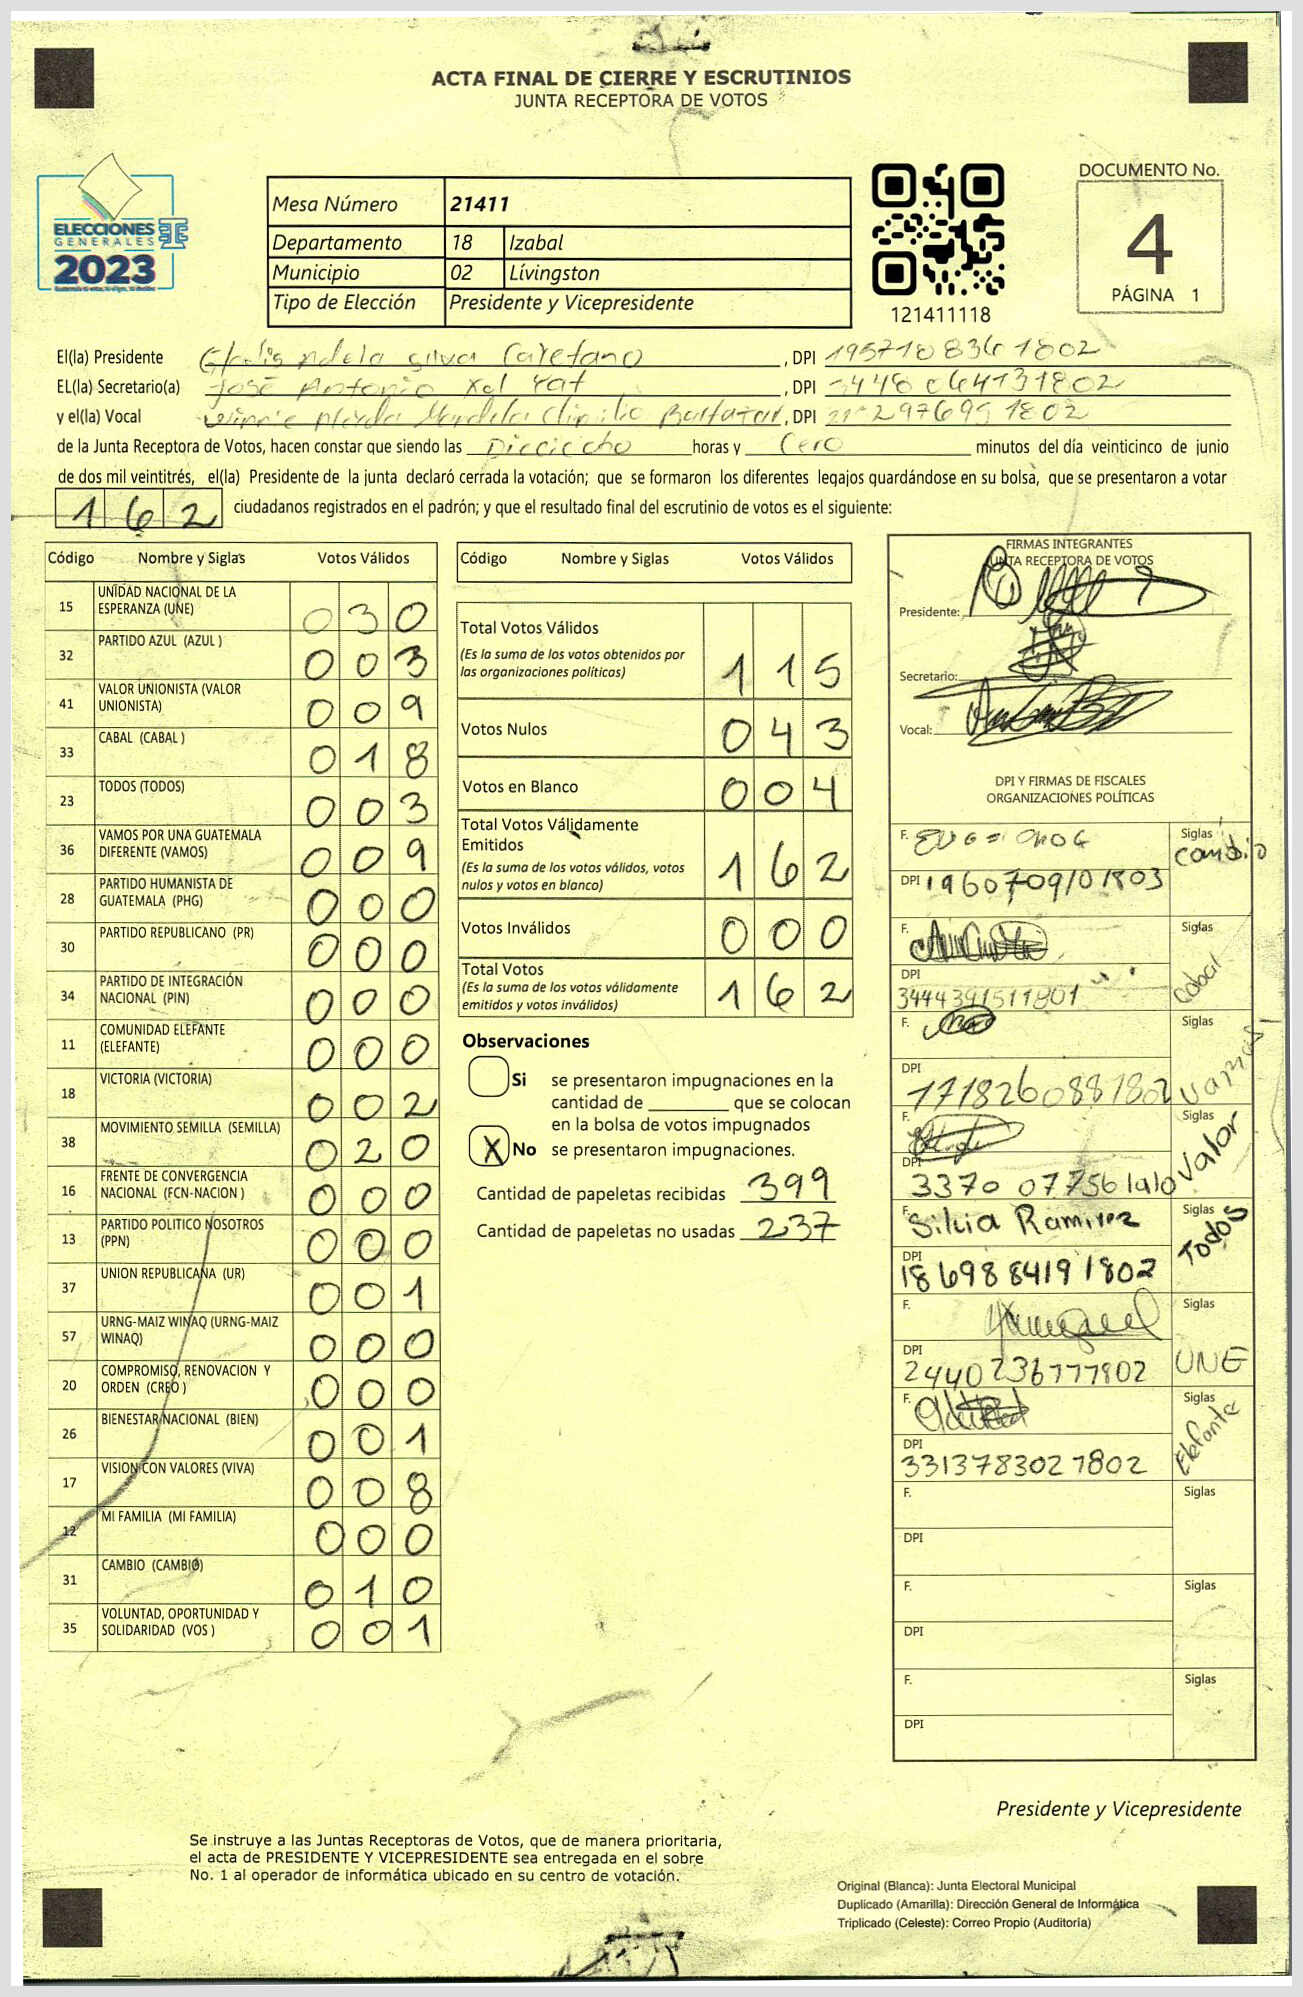 ACTA FINAL DE CIERRE Y ESCRUTINIOS
JUNTA RECEPTORA DE VOTOS
ELECCIONES
GENERALES
2023
Mesa Número 21411
Departamento 18 Izabal
Municipio 02 Lívingston
Tipo de Elección Presidente y Vicepresidente
121411118
DOCUMENTO No.
4
PÁGINA 1
El(la) Presidente Silva Cayetano, DPI 195718836 1802
EL(la) Secretario(a) José Antonio Xol Yat, DPI 3448064131802
y el(la) Vocal Baltazar, DPI
de la Junta Receptora de Votos, hacen constar que siendo las Dieciocho horas y Cero minutos del día veinticinco de junio
de dos mil veintitrés, el(la) Presidente de la junta declaró cerrada la votación; que se formaron los diferentes legajos guardándose en su bolsa, que se presentaron a votar
162 ciudadanos registrados en el padrón; y que el resultado final del escrutinio de votos es el siguiente:
Código Nombre y Siglas Votos Válidos
15 UNIDAD NACIONAL DE LA ESPERANZA (UNE) 030
32 PARTIDO AZUL (AZUL ) 003
41 VALOR UNIONISTA (VALOR UNIONISTA) 009
33 CABAL (CABAL ) 018
23 TODOS (TODOS) 003
36 VAMOS POR UNA GUATEMALA DIFERENTE (VAMOS) 009
28 PARTIDO HUMANISTA DE GUATEMALA (PHG) 000
30 PARTIDO REPUBLICANO (PR) 000
34 PARTIDO DE INTEGRACIÓN NACIONAL (PIN) 000
11 COMUNIDAD ELEFANTE (ELEFANTE) 000
18 VICTORIA (VICTORIA) 002
38 MOVIMIENTO SEMILLA (SEMILLA) 020
16 FRENTE DE CONVERGENCIA NACIONAL (FCN-NACION ) 000
13 PARTIDO POLITICO NOSOTROS (PPN) 000
37 UNION REPUBLICANA (UR) 001
57 URNG-MAIZ WINAQ (URNG-MAIZ WINAQ) 000
20 COMPROMISO, RENOVACION Y ORDEN (CREO ) 000
26 BIENESTAR NACIONAL (BIEN) 001
17 VISION CON VALORES (VIVA) 008
12 MI FAMILIA (MI FAMILIA) 000
31 CAMBIO (CAMBIO) 010
35 VOLUNTAD, OPORTUNIDAD Y SOLIDARIDAD (VOS ) 001
Código Nombre y Siglas Votos Válidos
Total Votos Válidos 115
(Es la suma de los votos obtenidos por
las organizaciones políticas)
Votos Nulos 043
Votos en Blanco 004
Total Votos Válidamente
Emitidos 162
(Es la suma de los votos válidos, votos
nulos y votos en blanco)
Votos Inválidos 000
Total Votos 162
(Es la suma de los votos válidamente
emitidos y votos inválidos)
Observaciones
Si se presentaron impugnaciones en la
cantidad de ________ que se colocan
en la bolsa de votos impugnados
X No se presentaron impugnaciones.
Cantidad de papeletas recibidas 399
Cantidad de papeletas no usadas 237
FIRMAS INTEGRANTES
JUNTA RECEPTORA DE VOTOS
Presidente:
Secretario:
Vocal:
DPI Y FIRMAS DE FISCALES
ORGANIZACIONES POLÍTICAS
F. Siglas cambio
DPI 1960709101803
F. Siglas cabal
DPI 3444391511801
F. Siglas vamos
DPI 1718260881802
F. Siglas Valor
DPI 3370 07756 1210
F. Silvia Ramirez Siglas Todos
DPI 18698 84191802
F. Siglas UNE
DPI 2440236777802
F. Siglas Elefante
DPI 3313783021802
F. Siglas
DPI
F. Siglas
DPI
F. Siglas
DPI
Presidente y Vicepresidente
Se instruye a las Juntas Receptoras de Votos, que de manera prioritaria,
el acta de PRESIDENTE Y VICEPRESIDENTE sea entregada en el sobre
No. 1 al operador de informática ubicado en su centro de votación.
Original (Blanca): Junta Electoral Municipal
Duplicado (Amarilla): Dirección General de Informática
Triplicado (Celeste): Correo Propio (Auditoría)